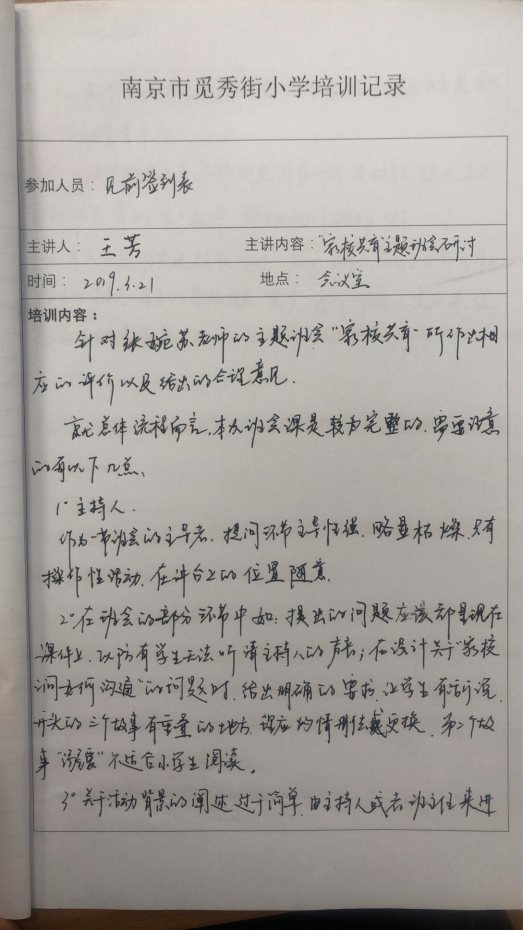 南京市觅秀街小学培训记录
参加人员：见前签到表
主讲人：王芳 主讲内容："家校共育主题班会研讨
时间：2019.3.21 地点：会议室
培训内容：
针对张婉苏老师的主题班会"家校共育"所作出相
应的评价以及给出的合理意见.
就总体流程而言,本次班会课是较为完整的.需要注意
的有以下几点.
1°主持人.
作为一节班会的主导者.提问环节主导性强.略显枯燥.只有
操作性活动.在讲台上的位置随意.
2°在班会的部分环节中如:提出的问题应该都呈现在
课件上.以防有学生无法听清主持人的声音;在设计关于"家校
间如何沟通"的问题时.给出明确的要求.让学生有话可说.
开头的三个故事有重叠的地方.酌情删减或更换.第二个故
事 不适合小学生阅读。
3°关于活动背景的阐述过于简单.由主持人或者班主任来进